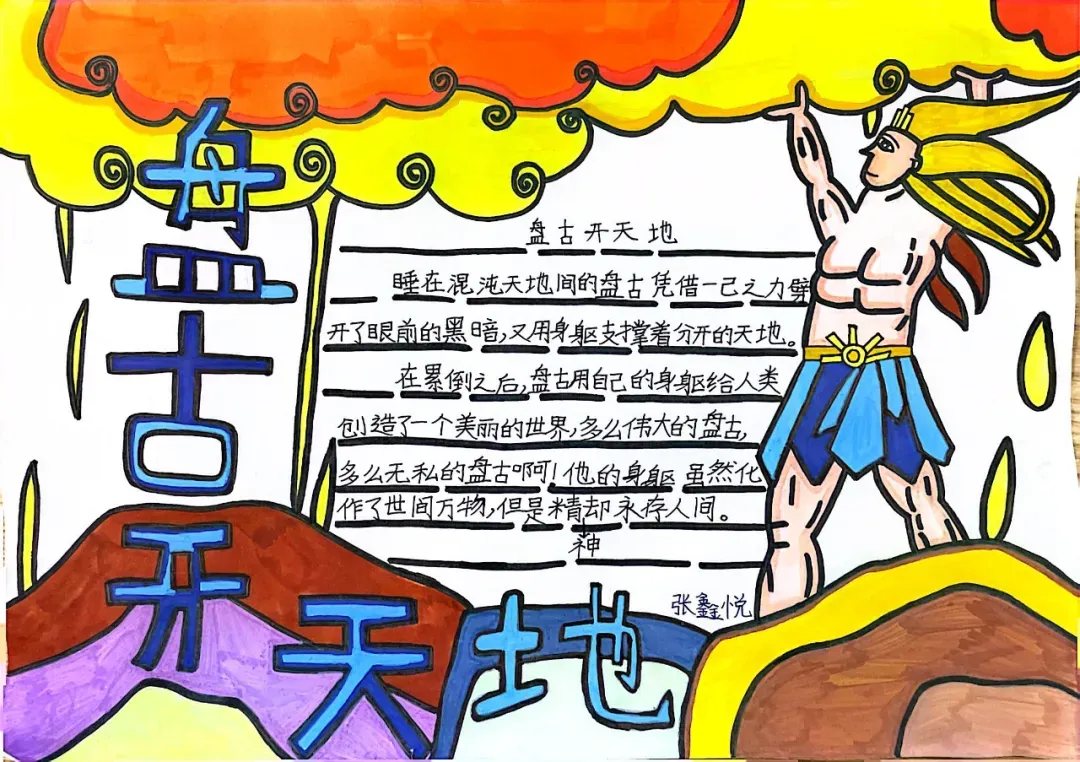 盘古开天地
盘古开天地
睡在混沌天地间的盘古凭借一己之力劈
开了眼前的黑暗,又用身躯支撑着分开的天地。
在累倒之后,盘古用自己的身躯给人类
创造了一个美丽的世界,多么伟大的盘古,
多么无私的盘古啊!他的身躯虽然化
作了世间万物,但是精却永存人间。
神
张鑫悦